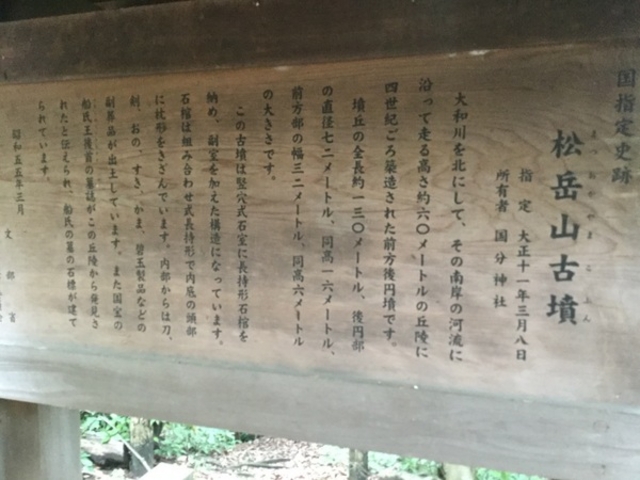 国指定史跡
松岳山古墳
まつおかやまこふん
指定 大正十一年三月八日
所有者 国分神社
大和川を北にして、その南岸の河流に
沿って走る高さ約六〇メートルの丘陵に
四世紀ごろ築造された前方後円墳です。
墳丘の全長約一三〇メートル、後円部
の直径七二メートル、同高一六メートル、
前方部の幅三二メートル、同高六メートル
の大きさです。
この古墳は竪穴式石室に長持形石棺を
納め、副室を加えた構造になっています。
石棺は組み合わせ式長持形で内底の頭部
に枕形をきざんでいます。内部からは刀、
剣、おの、すき、かま、碧玉製品などの
副葬品が出土しています。また国宝の
船氏王後首の墓誌がこの丘陵から発見さ
れたと伝えられ、船氏の墓の石標が建て
られています。
昭和五五年三月
文部省